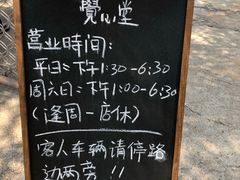 覺心堂
营业时间:
平日=下午1:30-6:30
周六日=下午1:00-6:30
(逢周一店休)
客人车辆请停路
边两旁!!